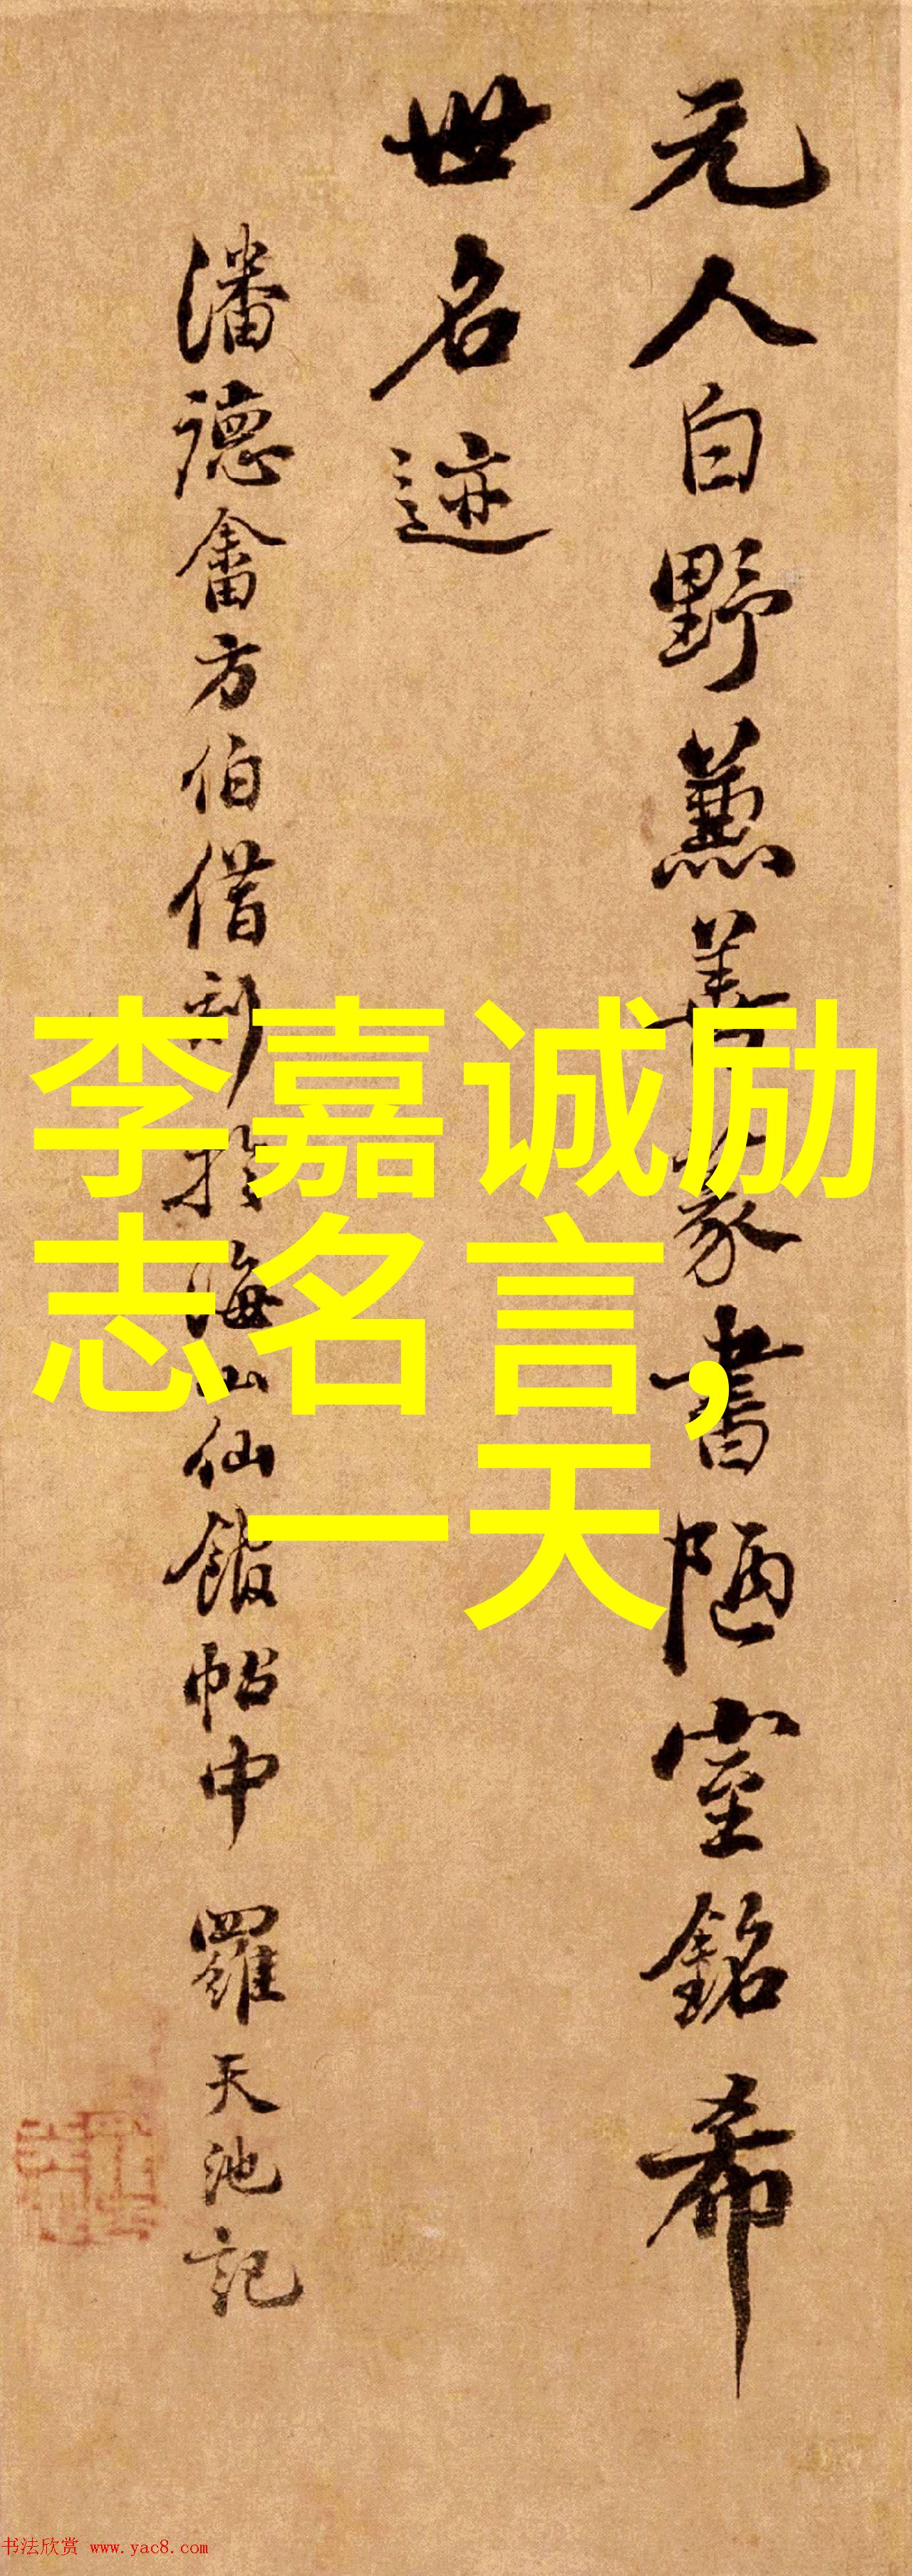 元人白野兼善篆書陋室銘希
世名迹
潘德畬方伯借刻於海山仙館帖中 羅天池記
李嘉诚励
志名言,
一天
书法欣赏 www.yac8.com